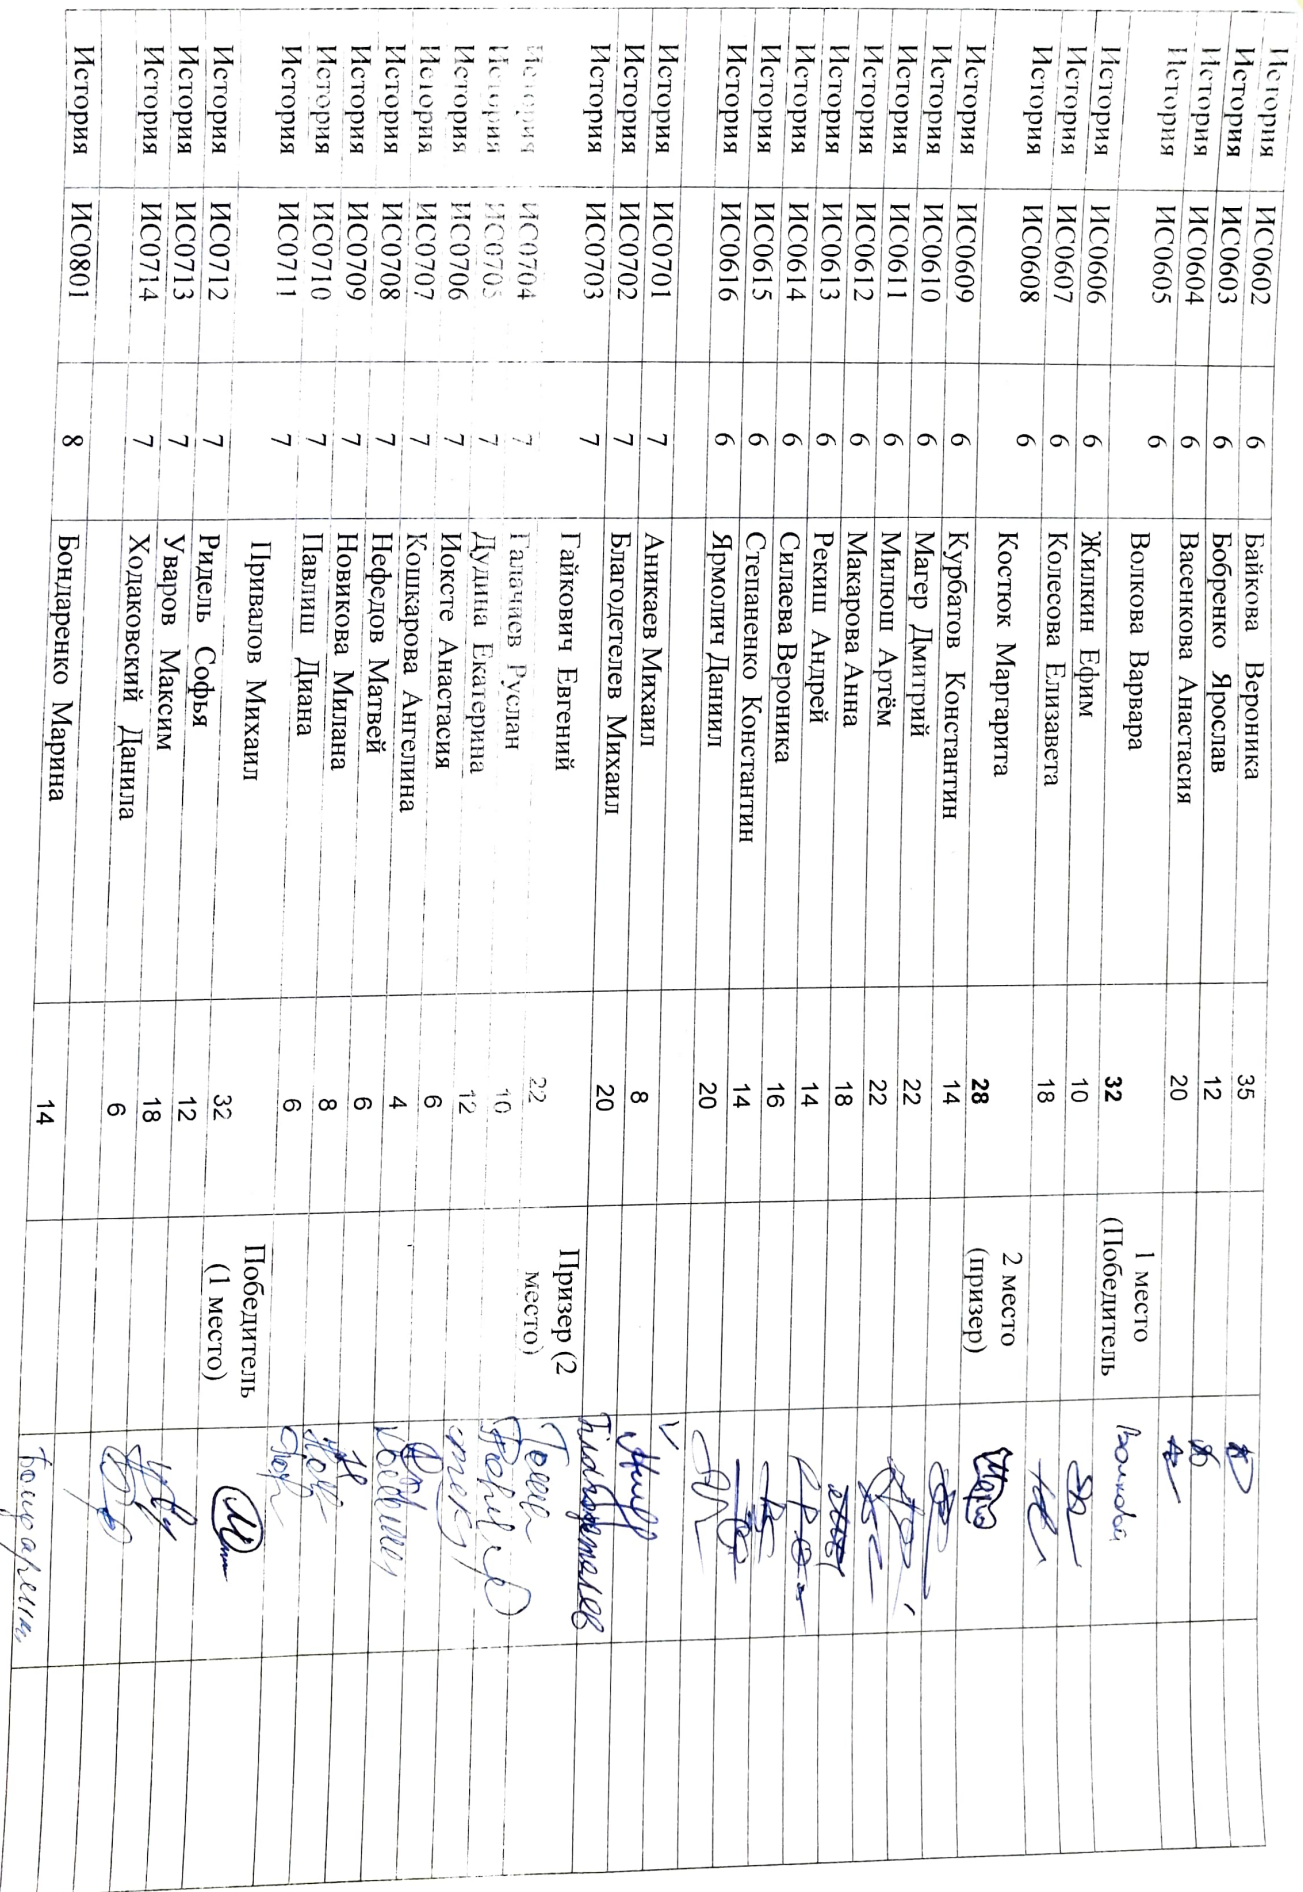 История ИС0602 6 Байкова Вероника 35
История ИС0603 6 Бобренко Ярослав 12
История ИС0604 6 Васенкова Анастасия 20
История ИС0605 6 Волкова Варвара 32 1 место
(Победитель
История ИС0606 6 Жилкин Ефим 10
История ИС0607 6 Колесова Елизавета 18
История ИС0608 6 Костюк Маргарита 28 2 место
(призер)
История ИС0609 6 Курбатов Константин 14
История ИС0610 6 Магер Дмитрий 22
История ИС0611 6 Милюш Артём 22
История ИС0612 6 Макарова Анна 18
История ИС0613 6 Рекиш Андрей 14
История ИС0614 6 Силаева Вероника 16
История ИС0615 6 Степаненко Константин 14
История ИС0616 6 Ярмолич Даниил 20
История ИС0701 7 Аникаев Михаил 8
История ИС0702 7 Благодетелев Михаил 20 Благодетелев
История ИС0703 7 Гайкович Евгений 22 Призер (2
место)
История ИС0704 7 Галачаев Руслан 10
История ИС0705 7 Дудина Екатерина 12
История ИС0706 7 Иоксте Анастасия 6
История ИС0707 7 Кошкарова Ангелина 4
История ИС0708 7 Нефедов Матвей 6
История ИС0709 7 Новикова Милана 8
История ИС0710 7 Павлиш Диана 6
История ИС0711 7 Привалов Михаил 32 Победитель
(1 место)
История ИС0712 7 Ридель Софья 12
История ИС0713 7 Уваров Максим 18
История ИС0714 7 Ходаковский Данила 6
История ИС0801 8 Бондаренко Марина 14